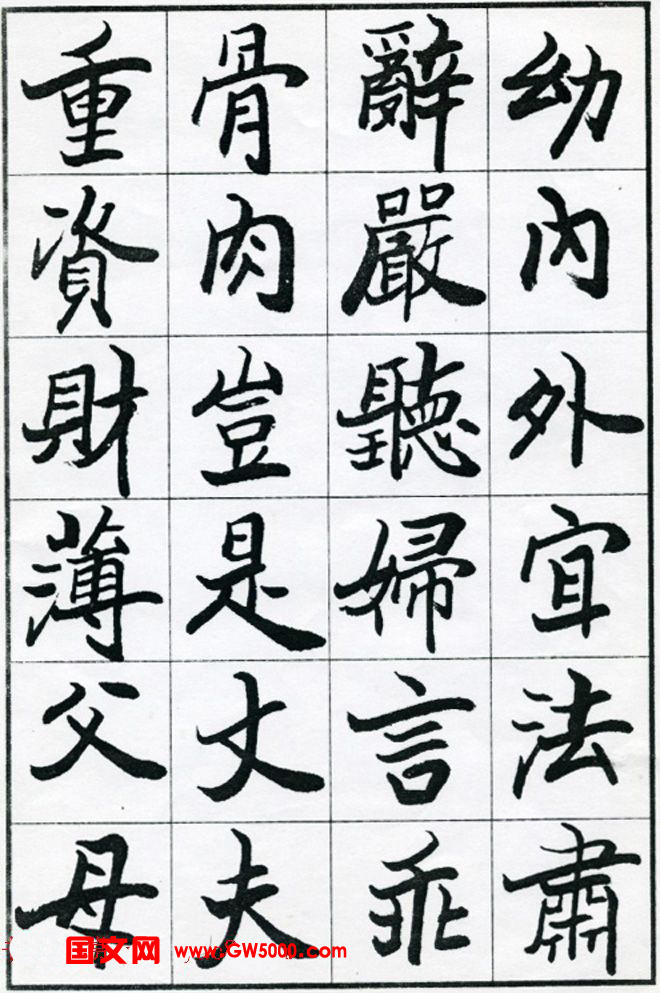 幼內外宜法肅
辭嚴聽婦言乖
骨肉豈是丈夫
重資財薄父母
国文网 www.GW5000.com